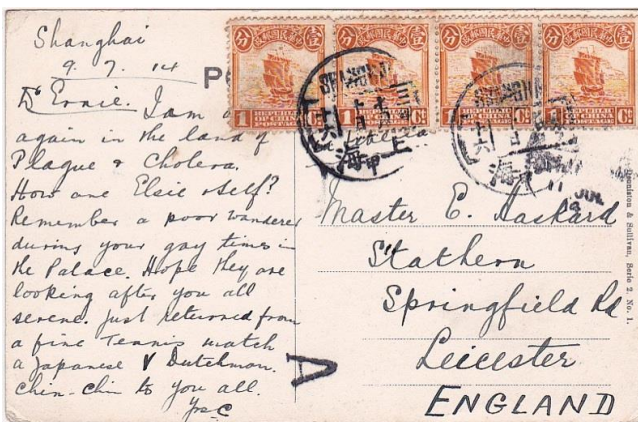 Shanghai
9.7.14
Dr Ernie. I am
again in the land of
Plague & Cholera.
How are Elsie & self?
Remember a poor wanderer
during your gay times in
the Palace. Hope they are
looking after you all
serene. Just returned from
a fine Tennis match
a Japanese V Dutchman.
Chin-chin to you all.
Yrs C
分 壹 分 壹 分 壹 分 壹
1 Ct 1 Ct 1 Ct 1 Ct
SHANGHAI
上海
SHANGHAI
海
JUL
Master E. Haskard
Stathern
Springfield Rd
Leicester
ENGLAND
A
& Sullivan, Serie 2, No. 1.